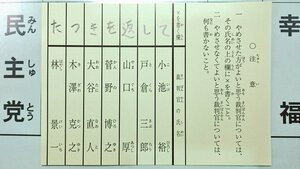 幸福
〇注意
一 やめさせた方がよいと思う裁判官については、
その氏名の上の欄に×を書くこと。
二 やめさせなくてよいと思う裁判官については、
何も書かないこと。
×を書く欄
裁判官の氏名
たつきを返して
小池 裕
戸倉 三郎
山口 厚
菅野 博之
大谷 直人
木澤 克之
林 景一
民主党
みんしゅとう